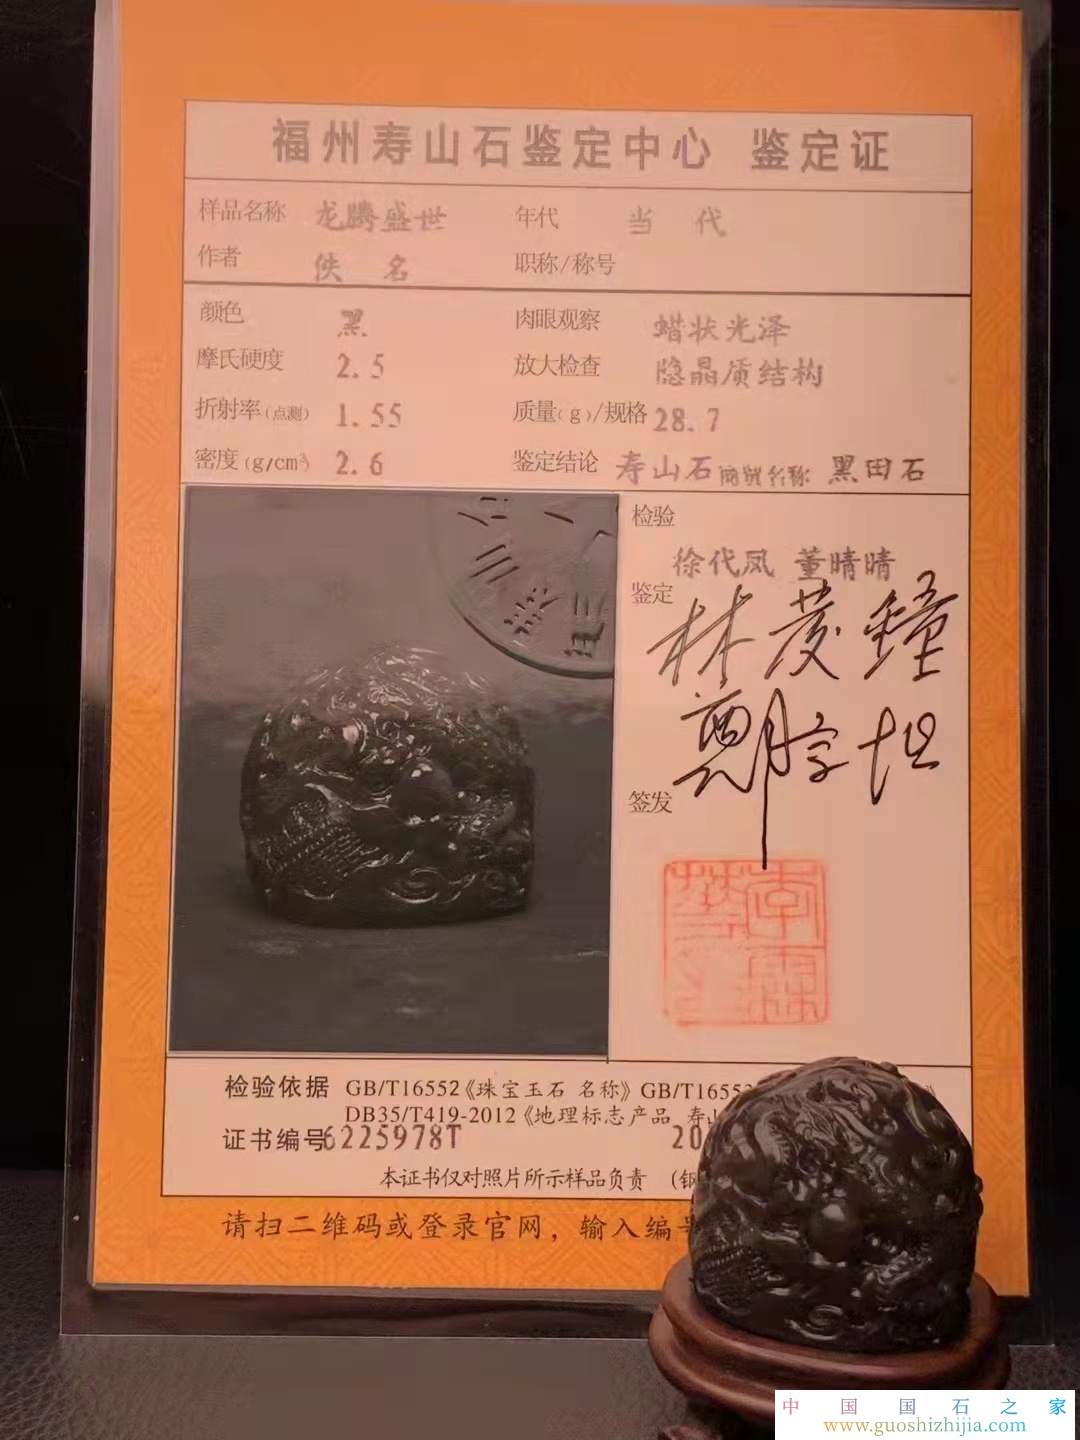 福州寿山石鉴定中心 鉴定证
样品名称 龙腾盛世 年代 当 代
作者 佚 名 职称/称号
颜色 黑 肉眼观察 蜡状光泽
摩氏硬度 2.5 放大检查 隐晶质结构
折射率(点测) 1.55 质量(g)/规格 28.7
密度(g/cm³) 2.6 鉴定结论 寿山石 商贸名称 黑田石
检验
徐代凤 董晴晴
鉴定
签发
检验依据 GB/T16552《珠宝玉石 名称》GB/T1655
DB35/T419-2012《地理标志产品 寿
证书编号 6225978T 20
本证书仅对照片所示样品负责
请扫二维码或登录官网，输入编号
中国国石之家
www.guoshizhijia.com